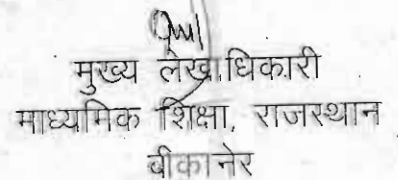 मुख्य लेखाधिकारी
माध्यमिक शिक्षा, राजस्थान
बीकानेर